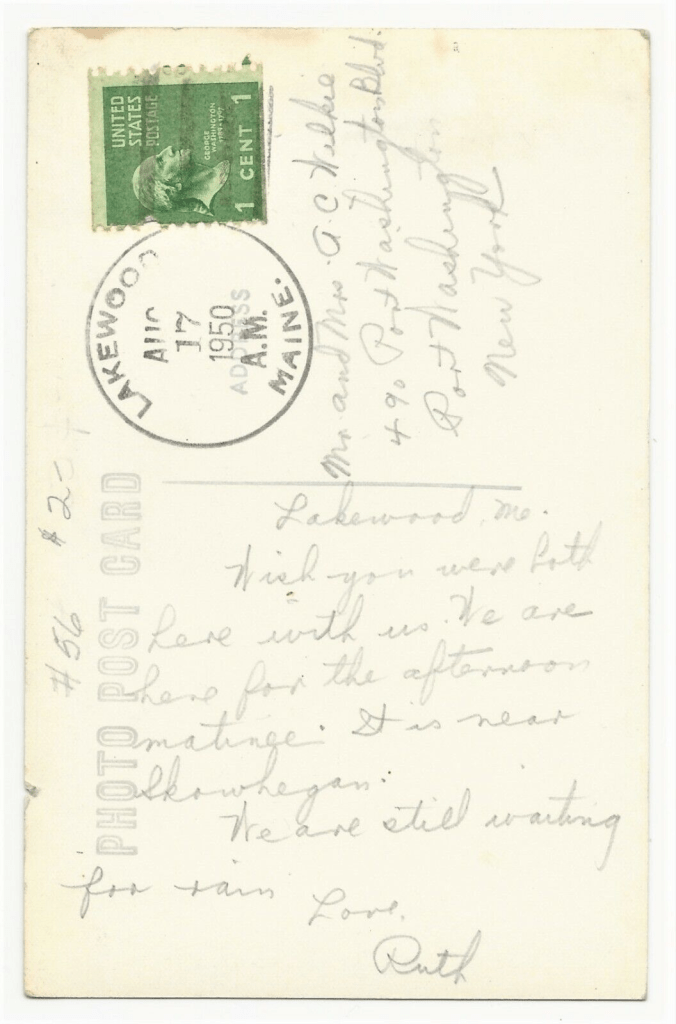 UNITED
STATES
POSTAGE
GEORGE
WASHINGTON
1 CENT 1
LAKEWOOD
MAINE.
AUG
17
1950
A.M.
ADDRESS
PHOTO POST CARD
#56 $2
Mr. and Mrs. A. C. Wilkie
490 Port Washington Blvd
Port Washington
New York
Lakewood, Me.
Wish you were both
here with us. We are
here for the afternoon
matinee. It is near
Skowhegan.
We are still waiting
for rain
Love,
Ruth